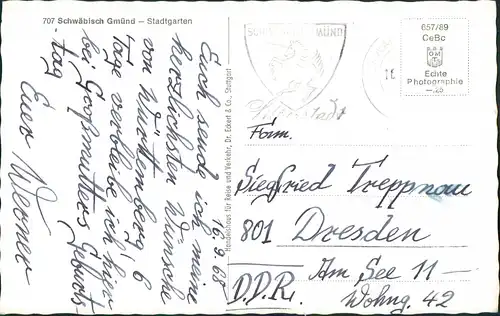 707 Schwäbisch Gmünd – Stadtgarten
16.9.68
Euch sende ich meine
herzlichsten Wünsche
von Württemberg! 6
Tage verbleibe ich hier
bei Großmutters Geburts-
tag
Euer Werner
Handelshaus für Reise und Verkehr, Dr. Eckert & Co., Stuttgart
SCHWÄBISCH GMÜND
657/89
CeBc
Echte
Photographie
Fam.
Siegfried Treppnau
801 Dresden
Am See 11 –
D.D.R.
Wohng. 42